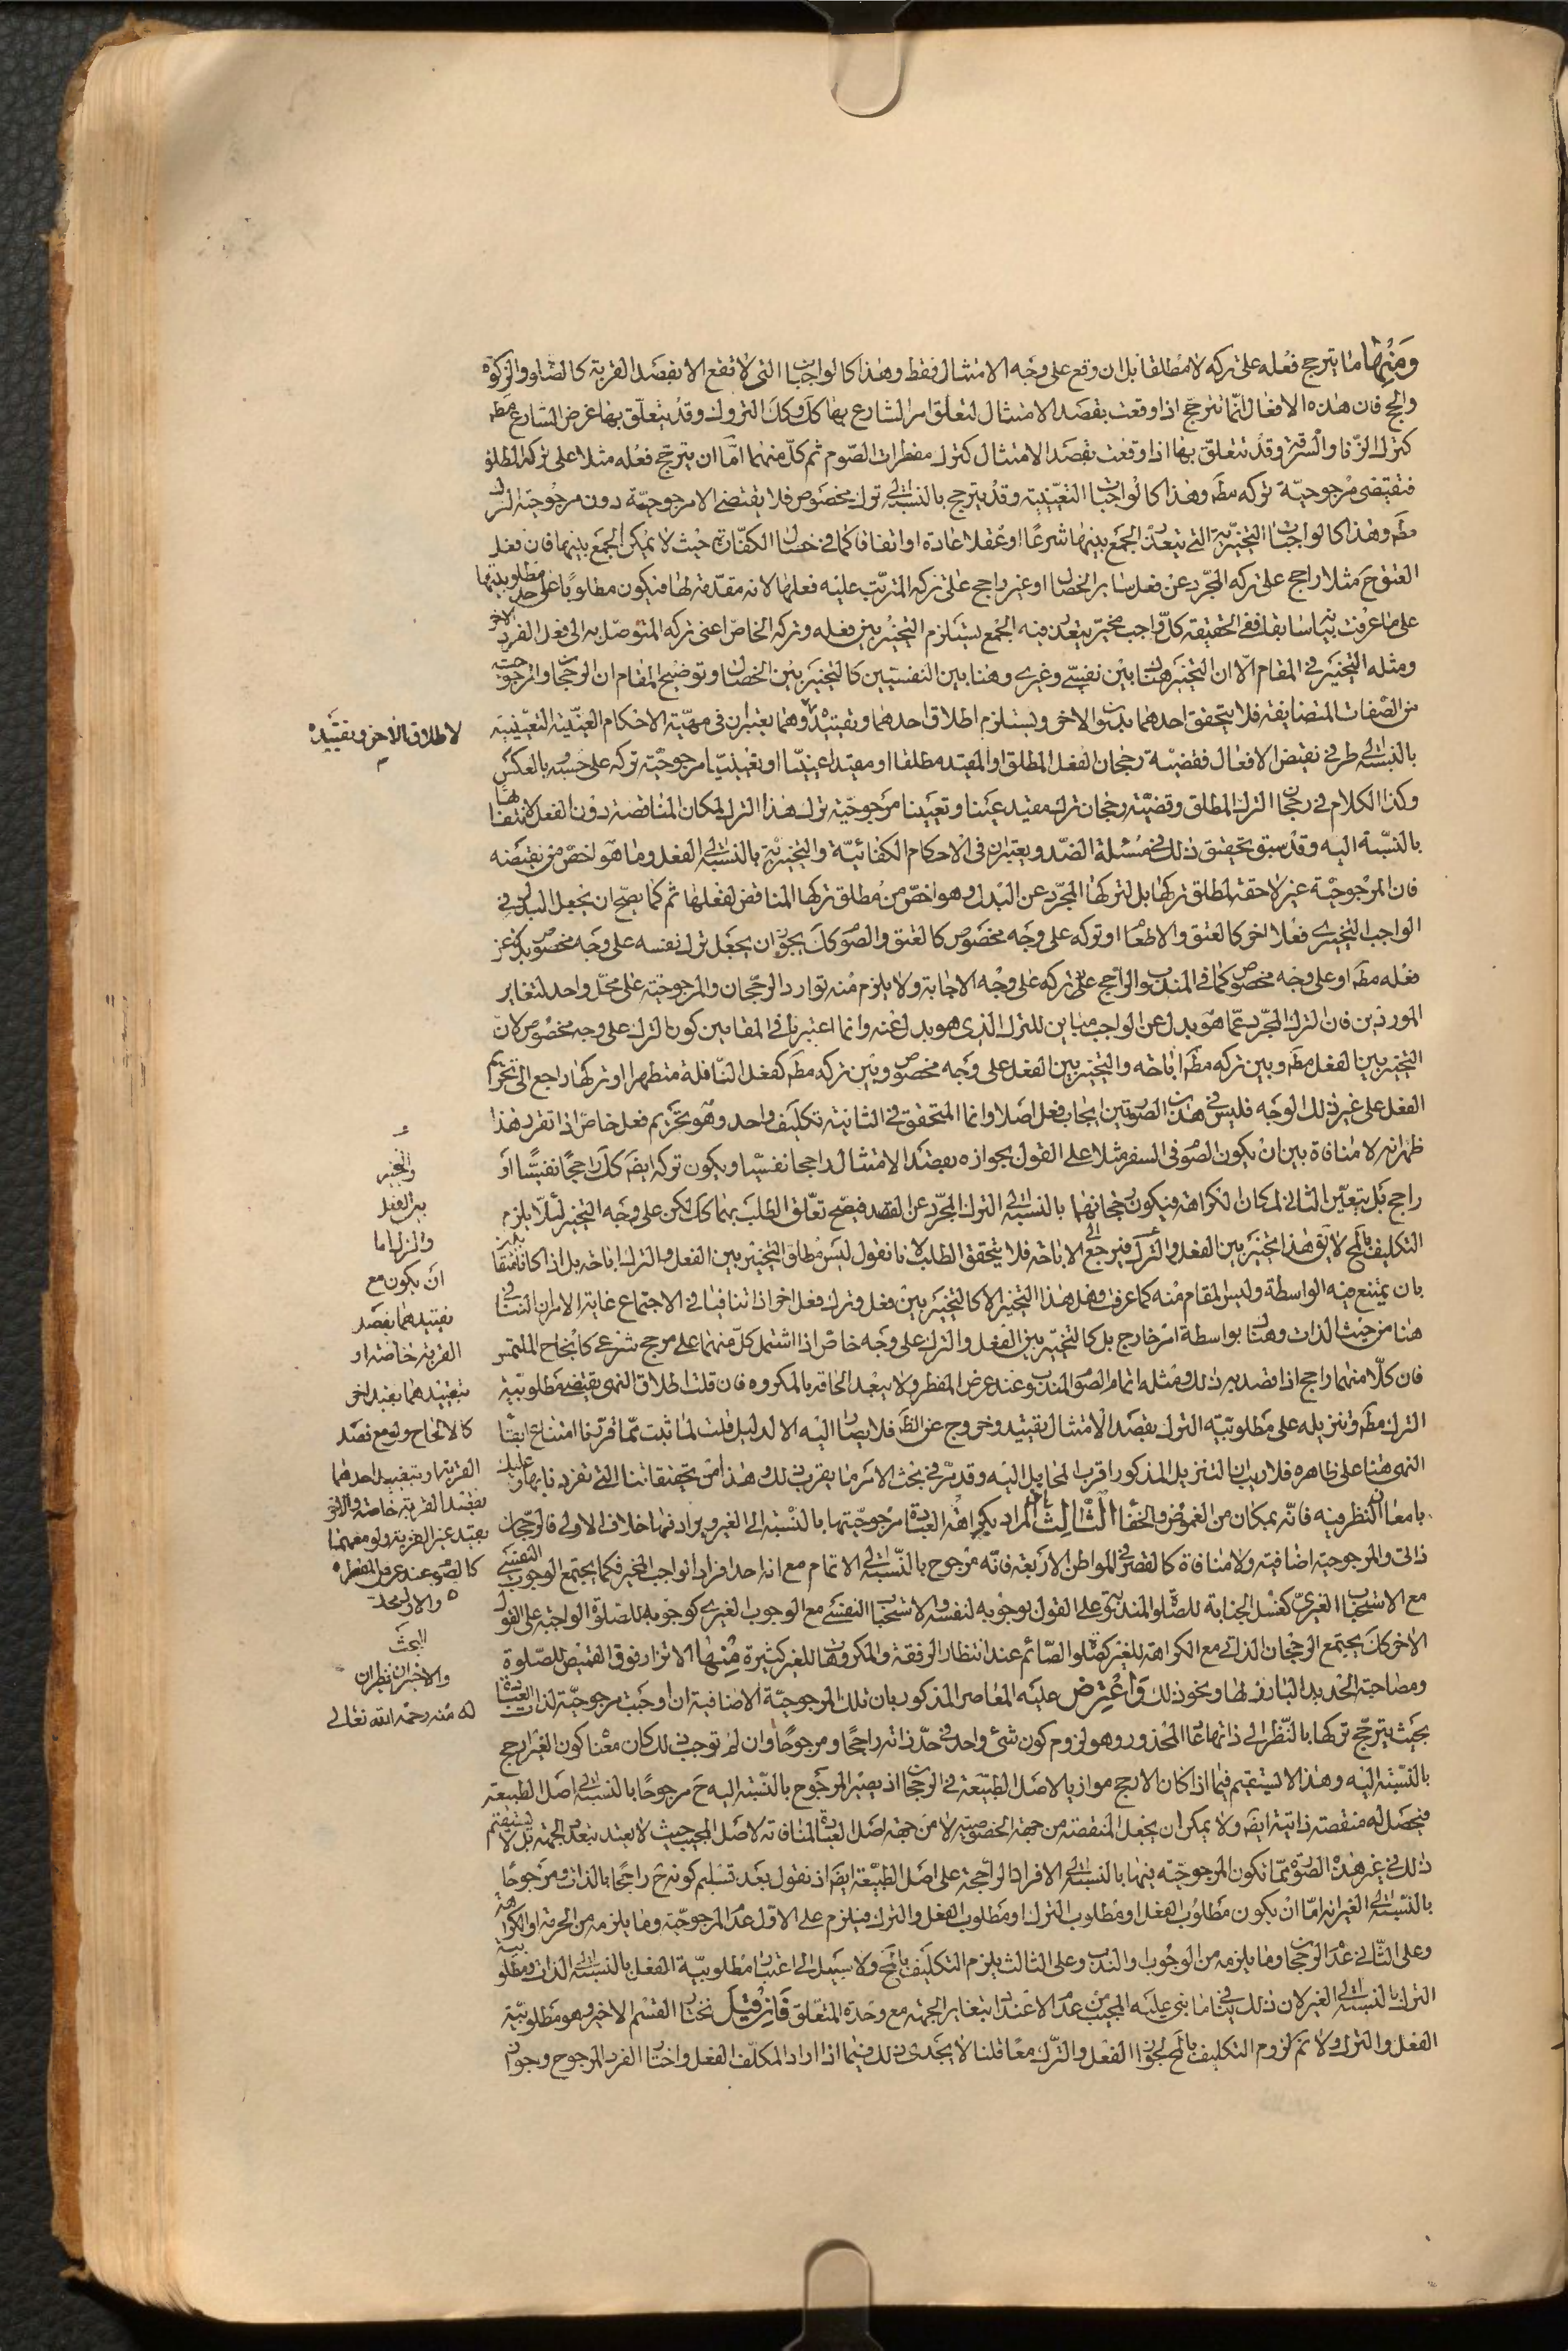 ومنها ما يترجح فعله على تركه لا مطلقا بل ان وقع على وجه الامتثال فقط وهذا كالواجبات التى لا تقع الا بقصد القربة كالصلوة والزكوة
والحج فان هذه الافعال انما تترجح اذا وقعت بقصد الامتثال لتعلق امر الشارع بها كك وكك التروك وقد يتعلق بها غرض الشارع مطم
كترك الزنا والسرقة وقد تتعلق بها اذا وقعت بقصد الامتثال كترك مفطرات الصوم ثم كل منهما اما ان يترجح فعله مثلا على تركه المطلق
فتقتضى مرجوحية تركه مطم وهذا كالواجبات التعيينية وقد يترجح بالنسبة الى ترك مخصوص فلا يقتضى الا مرجوحيته دون مرجوحية الترك
مطم وهذا كالواجبات التخييرية التى يتعذر الجمع بينها شرعا او عقلا عادة او اتفاقا كما فى خصال الكفارة حيث لا يمكن الجمع بينها فان فعل
العتق ح مثلا راجح على تركه المجرد عن فعل ساير الخصال او غير راجح على تركه المترتب عليه فعلها لانه مقدمة لها فيكون مطلوبا على حد مطلوبيتها
على ما عرفت بيانه سابقا ففى الحقيقة كل واجب مخير يتعذر فيه الجمع يستلزم التخيير بين فعله وتركه الخاص اعنى تركه المتوصل به الى فعل الفرد الاخر
ومثله التخيير فى المقام الا ان التخيير هناك بين نفسى وغيرى وهنا بين النفسيين كالتخيير بين الخصال وتوضيح المقام ان الرجحان والمرجوحية
من الصفات المتضايفة فلا يتحقق احدهما بدون الاخر ويستلزم اطلاق احدهما وتقييده وهما يعتبران فى مهية الاحكام العينية التعيينية
لاطلاق الاخر وتقييده
بالنسبة الى طرفى نقيض الافعال فقضية رجحان الفعل المطلق او المقيد مطلقا او مقيدا عينيا او تعيينيا مرجوحية تركه على حسبه وبالعكس
وكذا الكلام فى رجحان الترك المطلق وقضية رجحان ترك مقيد عينا وتعيينا مرجوحية ترك هذا الترك لمكان المناقضة دون الفعل لانتفائها
بالنسبة اليه وقد سبق تحقيق ذلك فى مسئلة الضد ويعتبران فى الاحكام الكفائية والتخييرية بالنسبة الى الفعل وما هو اخص من نقيضه
فان المرجوحية غير لاحقة لمطلق تركها بل لتركها المجرد عن البدل وهو اخص من مطلق تركها المناقض لفعلها ثم كما يصح ان يجعل البدل فى
الواجب التخييرى فعلا اخر كالعتق والاطعام او تركه على وجه مخصوص كالعتق والصوم كك يجوز ان يجعل ترك نفسه على وجه مخصوص بدلا عن
فعله مطم او على وجه مخصوص كما فى المندوب الراجح على تركه على وجه الاجابة ولا يلزم منه توارد الرجحان والمرجوحية على محل واحد لتغاير
الموردين فان الترك المجرد عما هو بدل عن الواجب مباين للترك الذى هو بدل عنه وانما اعتبرنا فى المقامين كون الترك على وجه مخصوص لان
التخيير بين الفعل مطم وبين تركه مطم اباحة والتخيير بين الفعل على وجه مخصوص وبين تركه مطم كفعل النافلة متطهرا او تركها راجع الى تحريم
الفعل على غير ذلك الوجه فليس فى هذين الصورتين ايجاب فعل اصلا وانما المتحقق فى الثانية تكليف واحد وهو تحريم فعل خاص اذا تقرر هذا
ظهر انه لا منافاة بين ان يكون الصوم فى السفر مثلا على القول بجوازه بقصد الامتثال راجحا نفسيا ويكون تركه ايضم كك راجحا نفسيا او
راجح بل يتعين الثانى لمكان الكراهة فيكون رجحانهما بالنسبة الى الترك المجرد عن القصد فيصح تعلق الطلب بهما كك لكن على وجه التخيير لئلا يلزم
التكليف بالمح لا يق هذا تخيير بين الفعل والترك فيرجع الى الاباحة فلا يتحقق الطلب لانا نقول ليس مطلق التخيير بين الفعل والترك اباحة بل اذا كانا نقيضين
بان يمتنع فيه الواسطة وليس المقام منه كما عرفت وهل هذا التخيير الا كالتخيير بين فعل وترك فعل اخر اذا تنافيا فى الاجتماع غاية الامر ان التنافى
هنا من حيث الذات وهناك بواسطة امر خارج بل كالتخيير بين الفعل والترك على وجه خاص اذا اشتمل كل منهما على مرجح شرعى كانجاح الملتمس
فان كلا منهما راجح اذا قصد به ذلك ومثله اتمام الصوم المندوب وعند عرض المفطر ولا يبعد الحاقه بالمكروه فان قلت اطلاق النهى يقتضى مطلوبية
الترك مطم وتنزيله على مطلوبية الترك بقصد الامتثال تقييد وخروج عن الظم فلا يصار اليه الا لدليل قلت لما ثبت مما قررنا امتناع ابقاء
النهى هنا على ظاهره فلا ريب ان التنزيل المذكور اقرب المحامل اليه وقد مر فى بحث الامر ما يقرب ذلك وهذا من تحقيقاتنا التى تفردنا بها وعليك
بامعان النظر فيه فانه بمكان من الغموض والخفاء الثالث المراد بكراهة العبادة مرجوحيتها بالنسبة الى الغير ويراد فيها خلاف الاولى فالرجحان
ذاتى والمرجوحية اضافية ولا منافاة كالقصر فى المواطن الاربعة فانه مرجوح بالنسبة الى الاتمام مع انه احد افراد الواجب المخير فكما يجتمع الوجوب النفسى
مع الاستحباب الغيرى كغسل الجنابة للصلوة المندوبة على القول بوجوبه لنفسه والاستحباب النفسى مع الوجوب الغيرى كوجوبه للصلوة الواجبة على القول
الاخر كك يجتمع الرجحان الذاتى مع الكراهة للغير كصلوة الصائم عند انتظار الرفقة والمكروهات للغير كثيرة منها الاتزار فوق القميص للصلوة
ومصاحبة الحديد البارز لها ونحو ذلك واعترض عليه المعاصر المذكور بان تلك المرجوحية الاضافية ان اوجبت مرجوحية لذات العبادة
بحيث يترجح تركها بالنظر الى ذاتها عاد المحذور وهو لزوم كون شئ واحد فى حد ذاته راجحا ومرجوحا وان لم توجب ذلك كان معناه كون الغير ارجح
بالنسبة اليه وهذا لا يستقيم فيما اذا كان الارجح موازيا لاصل الطبيعة فى الرجحان اذ يصير المرجوح بالنسبة اليه ح مرجوحا بالنسبة الى اصل الطبيعة
فيحصل له منقصة ذاتية ايضم ولا يمكن ان يجعل المنقصة من جهة الخصوصية لا من جهة اصل العبادة لمنافاته لاصل المجيب حيث لا يعتد بتعدد الجهة بل لا يستقيم
ذلك فى غير هذه الصورة مما تكون المرجوحية فيها بالنسبة الى الافراد الراجحة على اصل الطبيعة ايضم اذ نقول بعد تسليم كونه ح راجحا بالذات ومرجوحا
بالنسبة الى الغير انه اما ان يكون مطلوب الفعل او مطلوب الترك او مطلوب الفعل والترك فيلزم على الاول عدم المرجوحية وما يلزمه من الحرمة او الكراهة
وعلى الثانى عدم الرجحان وما يلزمه من الوجوب والندب وعلى الثالث يلزم التكليف بالمح ولا سبيل الى اعتبار مطلوبية الفعل بالنسبة الى الذات ومطلوبية
الترك بالنسبة الى الغير لان ذلك ينافى ما بنى عليه المجيب من عدم الاعتداد بتغاير الجهة مع وحدة المتعلق فان قيل نختار القسم الاخير وهو مطلوبية
الفعل والترك ولا نم لزوم التكليف بالمح لجواز الفعل والترك معا قلنا لا يجدى ذلك فيما اذا اراد المكلف الفعل واختار الفرد المرجوح وجواز
والتخيير
بين الفعل
والترك اما
ان يكون مع
تقييدهما بقصد
القربة خاصة او
بتقييدهما بقيد اخر
كالانجاح ولو مع قصد
القربة او بتقييد احدهما
بقصد القربة خاصة والاخر
بقيد غير القربة ولو معهما
كالصوم عند عرض المفطر
والاول محل
البحث
والاخيران نظيران
له منه رحمه الله تعالى